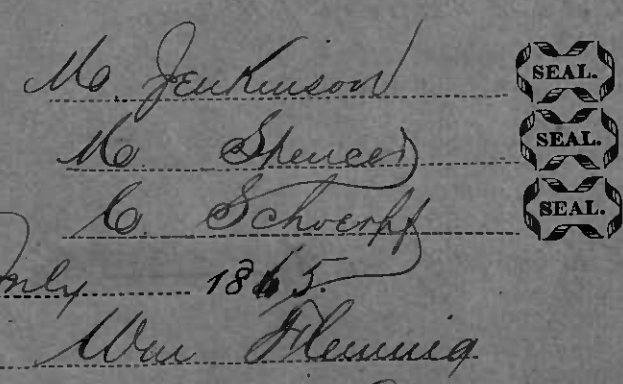 M. Jenkinson SEAL.
M. Spencer SEAL.
C. Schoerpf SEAL.
July 1865.
Wm Fleming